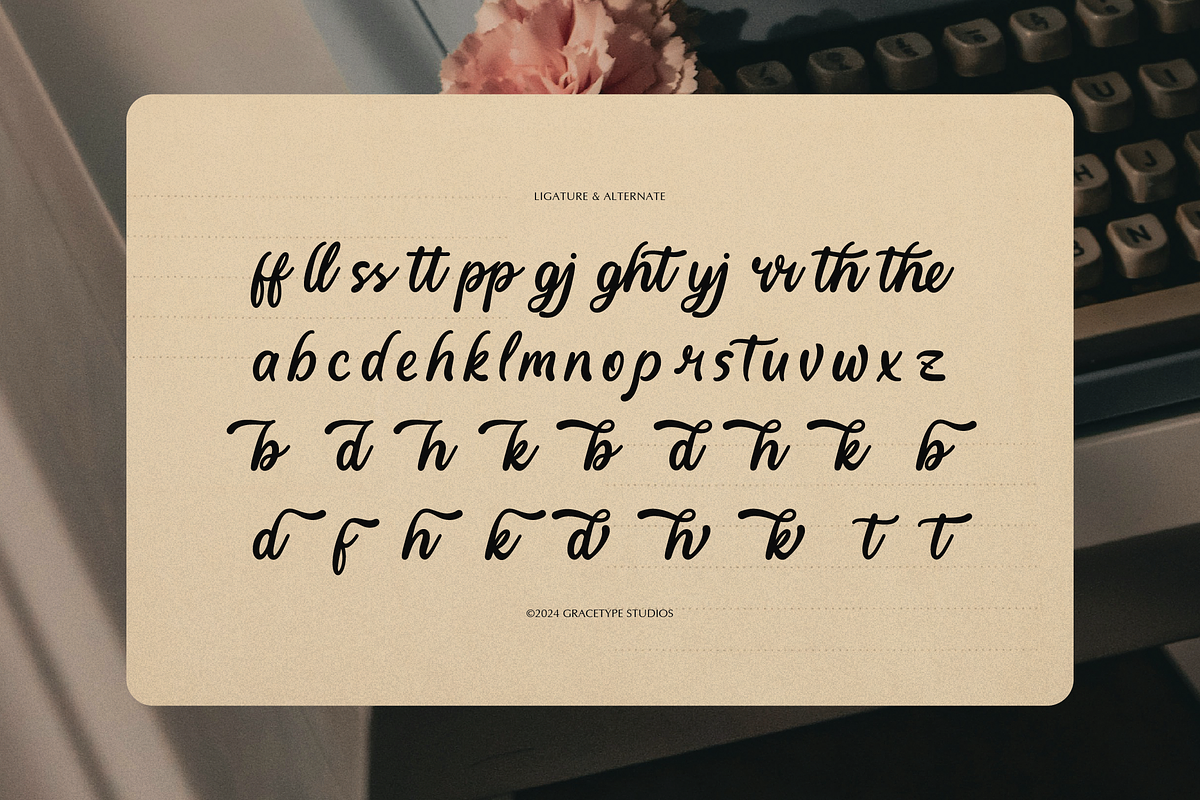 U I
H J
N
LIGATURE & ALTERNATE
ff ll ss tt pp gj ght yj rr th the
a b c d e h k l m n o p r s t u v w x z
b d h k b d h k b
d f h k d h k t t
©2024 GRACETYPE STUDIOS